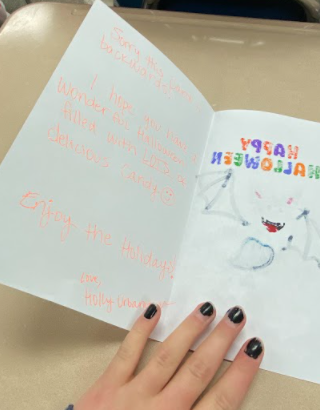 Sorry this
I hope you have a
Wonderful Halloween
filled with lots of
delicious candy
Enjoy the Holidays!
Love,
Holly
HAPPY
HALLOWEEN